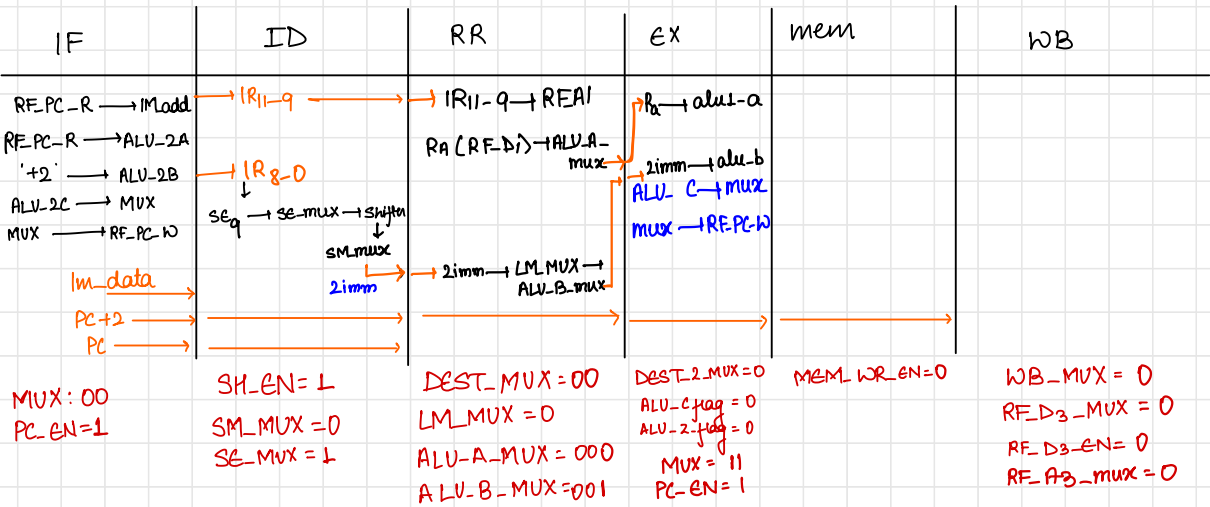 IF
ID
RR
EX
mem
WB
RF_PC_R → IM_add
RF_PC_R → ALU_2A
'+2' → ALU_2B
ALU_2C → MUX
MUX → RF_PC_W
Im_data
PC+2
PC
IR11-9
IR8-0
SE9 → SE_mux → Shifter
SM_mux
2imm
IR11-9 → RFA1
RA (RF_D1) → ALU_A_
mux
2imm → LM_MUX →
ALU_B_mux
Ra → alu1-a
2imm → alu_b
ALU_C → mux
mux → RF_PC_W
MUX: 00
PC_EN=1
SH_EN=1
SM_MUX=0
SE_MUX=1
DEST_MUX=00
LM_MUX=0
ALU-A_MUX=000
ALU-B_MUX=001
DEST_2_MUX=0
ALU_C flag=0
ALU-Z-flag=0
MUX=11
PC_EN=1
MEM_WR_EN=0
WB_MUX=0
RF_D3_MUX=0
RF_D3_EN=0
RF_A3_mux=0